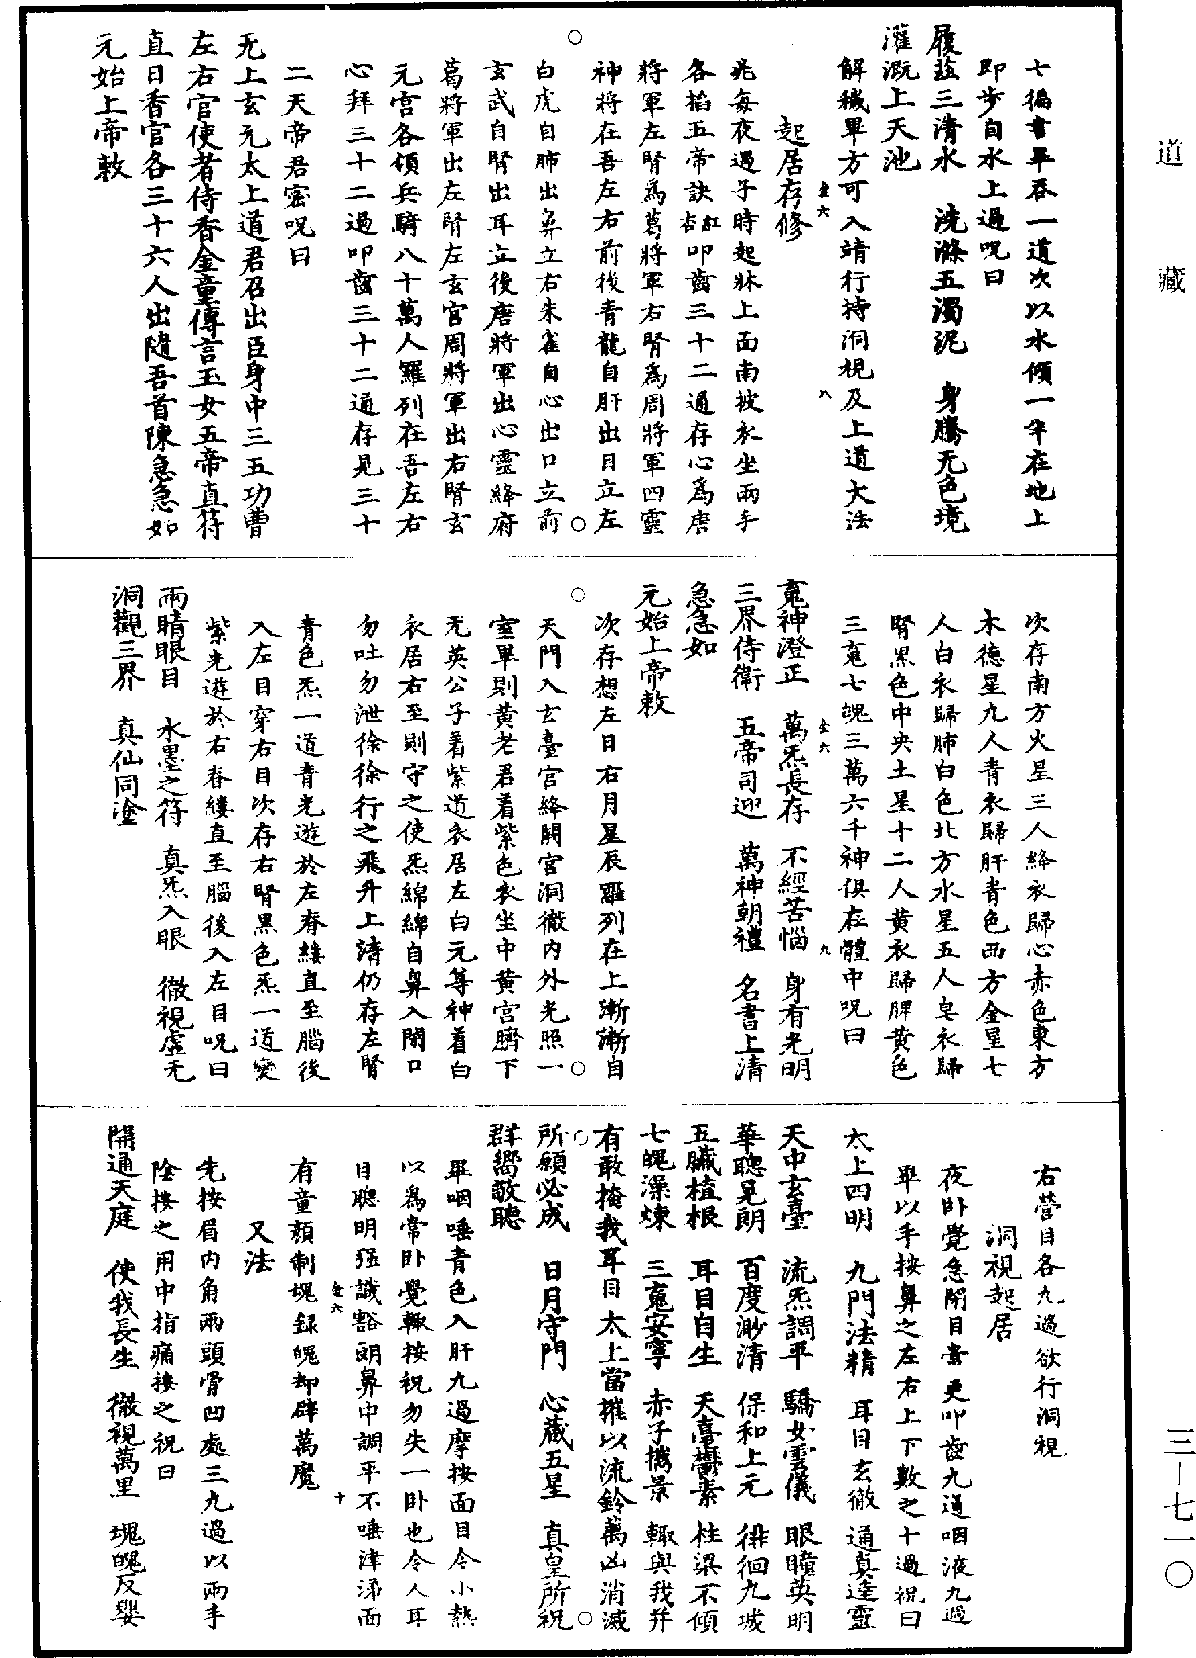 道藏
七徧書畢吞一道次以水傾一半在地上
即步自水上過呪曰
履茲三清水　洗滌五濁泥　身騰无色境
灌溉上天池
解穢畢方可入靖行持洞視及上道大法
起居存修
兆每夜過子時起牀上面南披衣坐兩手
各掐五帝訣叩齒三十二通存心為唐
將軍左腎為葛將軍右腎為周將軍四靈
神將在吾左右前後青龍自肝出目立左
白虎自肺出鼻立右朱雀自心出口立前
玄武自腎出耳立後唐將軍出心靈絳府
葛將軍出左腎左玄宮周將軍出右腎玄
元宮各領兵騎八十萬人羅列在吾左右
心拜三十二過叩齒三十二通存見三十
二天帝君密呪曰
无上玄元太上道君召出臣身中三五功曹
左右官使者侍香金童傳言玉女五帝真符
直日香官各三十六人出隨吾首陳急急如
元始上帝敕
次存南方火星三人絳衣歸心赤色東方
木德星九人青衣歸肝青色西方金星七
人白衣歸肺白色北方水星五人皂衣歸
腎黑色中央土星十二人黃衣歸脾黃色
三魂七魄三萬六千神俱在體中呪曰
魂神澄正　萬炁長存　不經苦惱　身有光明
三界侍衛　五帝司迎　萬神朝禮　名書上清
急急如
元始上帝敕
次存想左日右月星辰羅列在上漸漸自
天門入玄臺宮絳闕宮洞徹內外光照一
室畢則黃老君着紫色衣坐中黃宮臍下
无英公子着紫道衣居左白元等神着白
衣居右至則守之使炁綿綿自鼻入閉口
勿吐勿泄徐徐行之飛升上清仍存左腎
青色炁一道青光遊於左脊縷直至腦後
入左目穿右目次存右腎黑色炁一道變
紫光遊於右脊縷直至腦後入左目呪曰
兩睛眼目　水墨之符　真炁入眼　徹視虛无
洞觀三界　真仙同塗
右營目各九過欲行洞視
洞視起居
夜卧覺急閉目書更叩齒九通咽液九過
畢以手按鼻之左右上下數之十過祝曰
太上四明　九門法精　耳目玄徹　通真達靈
天中玄臺　流炁調平　驕女雲儀　眼瞳英明
華聰晃朗　百度渺清　保和上元　徘徊九城
五臟植根　耳目自生　天臺鬱素　柱梁不傾
七魄澡煉　三魂安寧　赤子攜景　輒與我并
有敢掩我耳目太上當摧以流鈴萬凶消滅
所願必成　日月守門　心藏五星　真皇所祝
群嚮敬聽
畢咽唾青色入肝九過摩按面目令小熱
以為常卧覺輒按祝勿失一卧也令人耳
目聰明強識豁朗鼻中調平不唾津涕面
有童顏制魂錄魄却辟萬魔
又法
先按眉內角兩頭骨凹處三九過以兩手
陰按之用中指痛按之祝曰
開通天庭　使我長生　徹視萬里　魂魄反嬰
三－七一〇